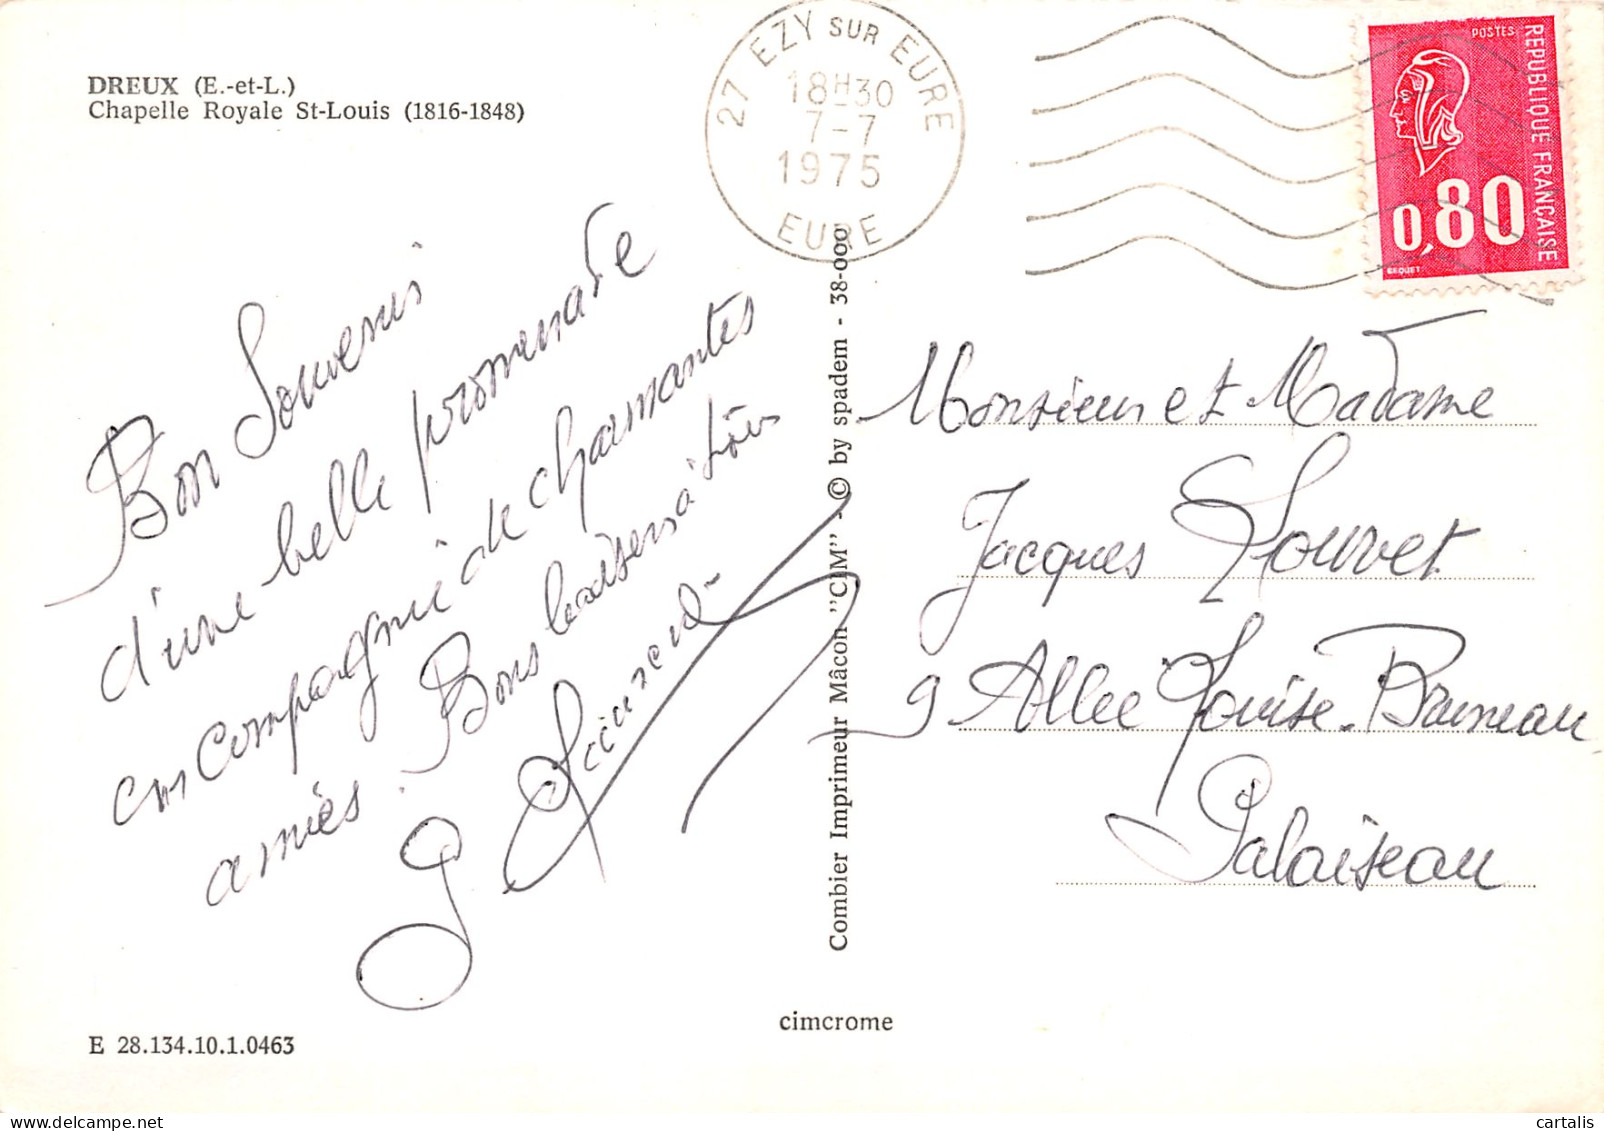 DREUX (E.-et-L.)
Chapelle Royale St-Louis (1816-1848)
27 EZY SUR EURE
18H30
7-7
1975
EURE
POSTES
REPUBLIQUE FRANÇAISE
0,80
BEQUET
Bon Souvenir
d'une belle promenade
en compagnie de charmantes
amies. Bons baisers à tous
G
Combier Imprimeur Mâcon "CIM" - © by spadem - 38-000
Monsieur et Madame
Jacques Louvet
9 Allee Louise. Bruneau
Palaiseau
cimcrome
E 28.134.10.1.0463
cartalis